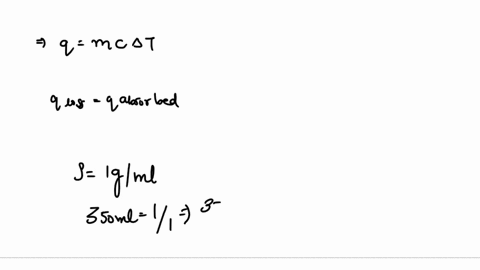 ⇒ q = mcΔT
q loss = q absorbed
ρ = 1g/ml
350ml = 1/1 ⇒ 3